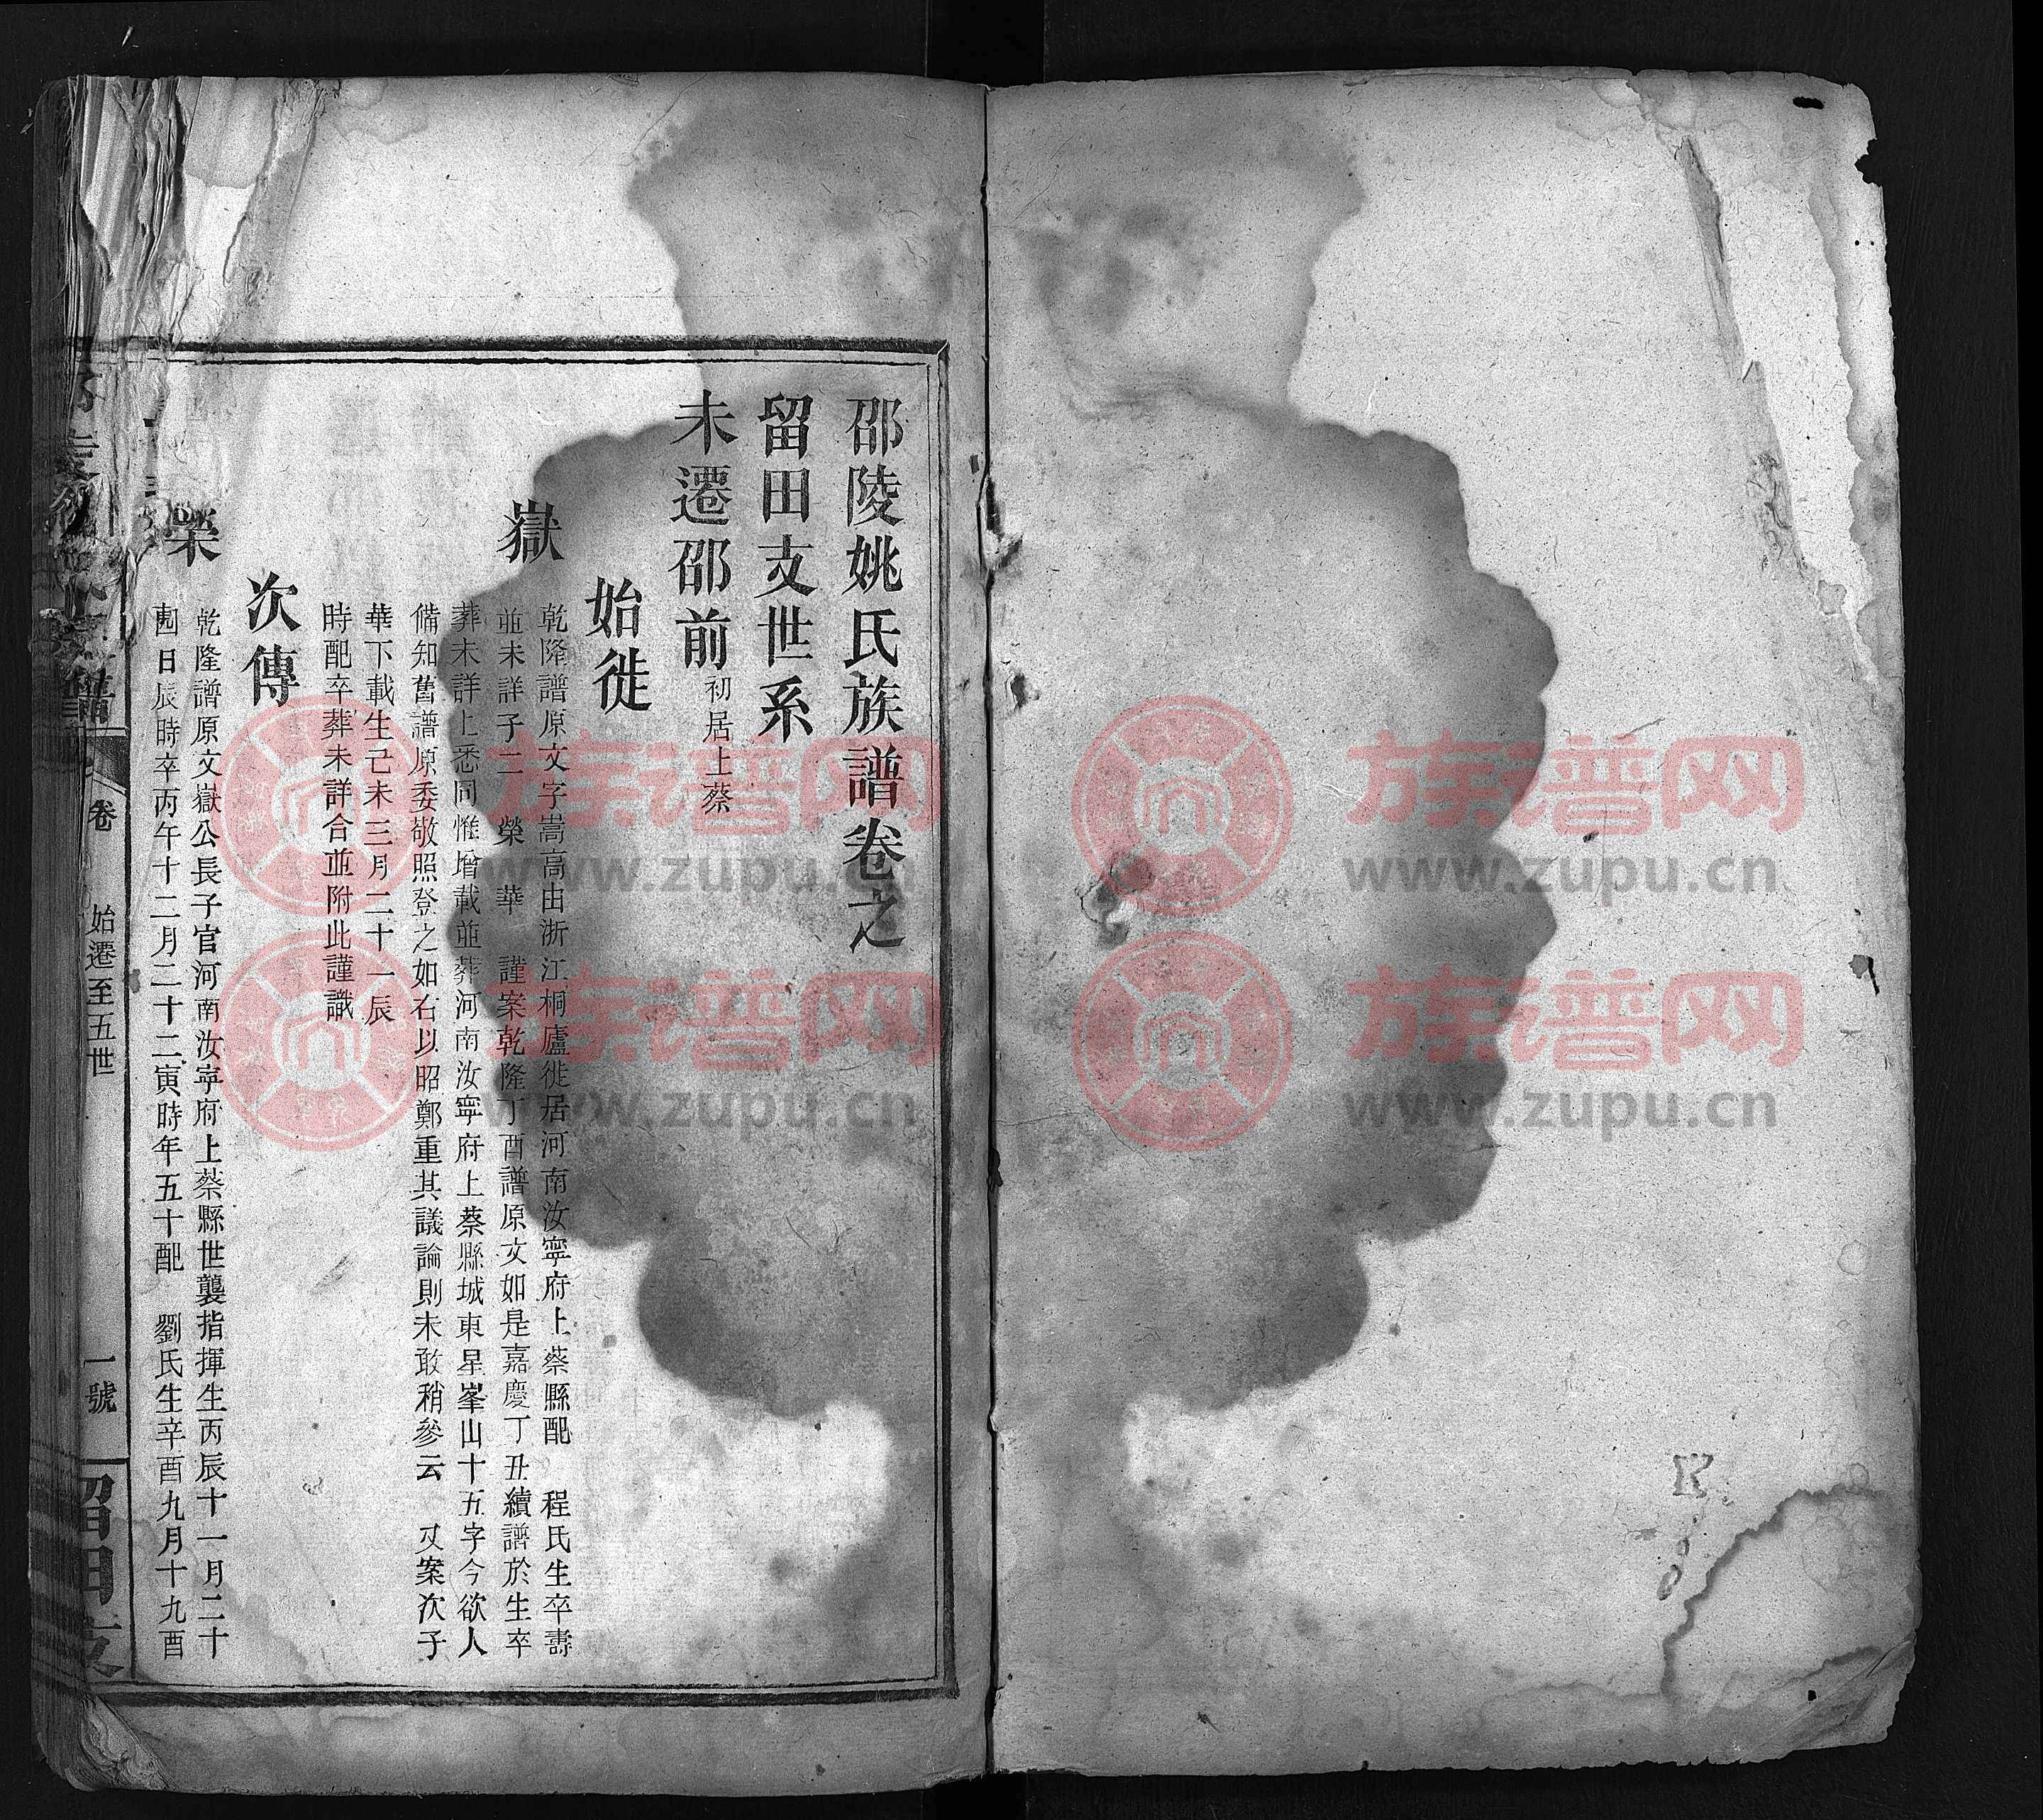 邵陵姚氏族譜卷之
留田支世系
未遷邵前初居上蔡
始徙
嶽
乾隆譜原文字嵩高由浙江桐廬徙居河南汝寧府上蔡縣配 程氏生卒壽
並未詳子二 榮 華 謹案乾隆丁酉譜原文如是嘉慶丁丑續譜於生卒
葬未詳上悉同惟增載並葬河南汝寧府上蔡縣城東星峯山十五字今欲人
備知舊譜原委敬照登之如右以昭鄭重其議論則未敢稍參云 又案次子
華下載生己未三月二十一辰
時配卒葬未詳合並附此謹識
次傳
榮
乾隆譜原文嶽公長子官河南汝寧府上蔡縣世襲指揮生丙辰十一月二十
四日辰時卒丙午十二月二十二寅時年五十配 劉氏生辛酉九月十九酉
卷 始遷至五世 一號
留田支
族谱网
www.zupu.cn
族谱网
www.zupu.cn
族谱网
www.zupu.cn
族谱网
www.zupu.cn